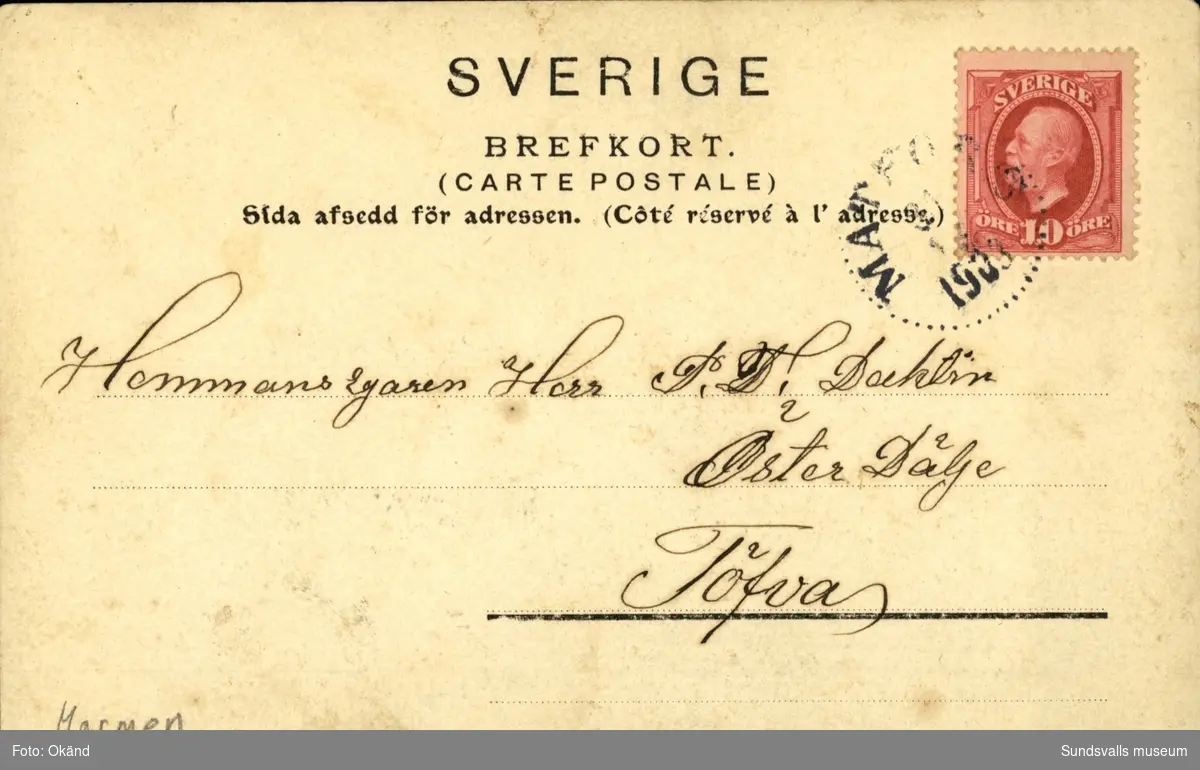 SVERIGE
BREFKORT.
(CARTE POSTALE)
Sida afsedd för adressen. (Côté réservé à l' adresse.)
SVERIGE
ÖRE 10 ÖRE
MATFORS
1903
Hemmansägaren Herr P. D.
Öster Dälje
Töfva
Marmen
Foto: Okänd
Sundsvalls museum